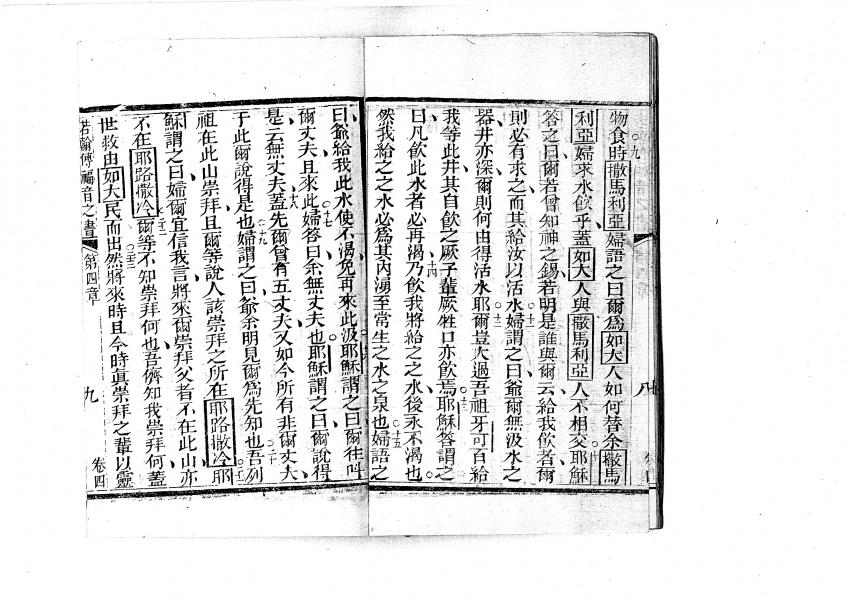 物食時撒馬利亞婦語之曰爾為如大人如何替余撒馬
利亞婦求水飲乎蓋如大人與撒馬利亞人不相交耶穌
答之曰爾若曾知神之錫若明是誰與爾云給我飲者爾
則必有求之而其給汝以活水婦謂之曰爺爾無汲水之
器井亦深爾則何由得活水耶爾豈大過吾祖牙可百給
我等此井其自飲之厥子輩厥牲口亦飲焉耶穌答謂之
曰凡飲此水者必再渴乃飲我將給之之水後永不渴也
然我給之之水必為其內湧至常生之水之泉也婦語之
曰爺給我此水使不渴免再來此汲耶穌謂之曰爾往呌
爾丈夫且來此婦答曰余無丈夫也耶穌謂之曰爾說得
是云無丈夫蓋先爾曾有五丈夫又如今所有非爾丈夫
于此爾說得是也婦謂之曰爺余明見爾為先知也吾列
祖在此山崇拜且爾等說人該崇拜之所在耶路撒冷耶
穌謂之曰婦爾宜信我言將來爾崇拜父者不在此山亦
不在耶路撒冷爾等不知崇拜何也吾儕知我崇拜何蓋
世救由如大民而出然將來時且今時眞崇拜之輩以靈
若翰傳福音之書 第四章 九 卷四